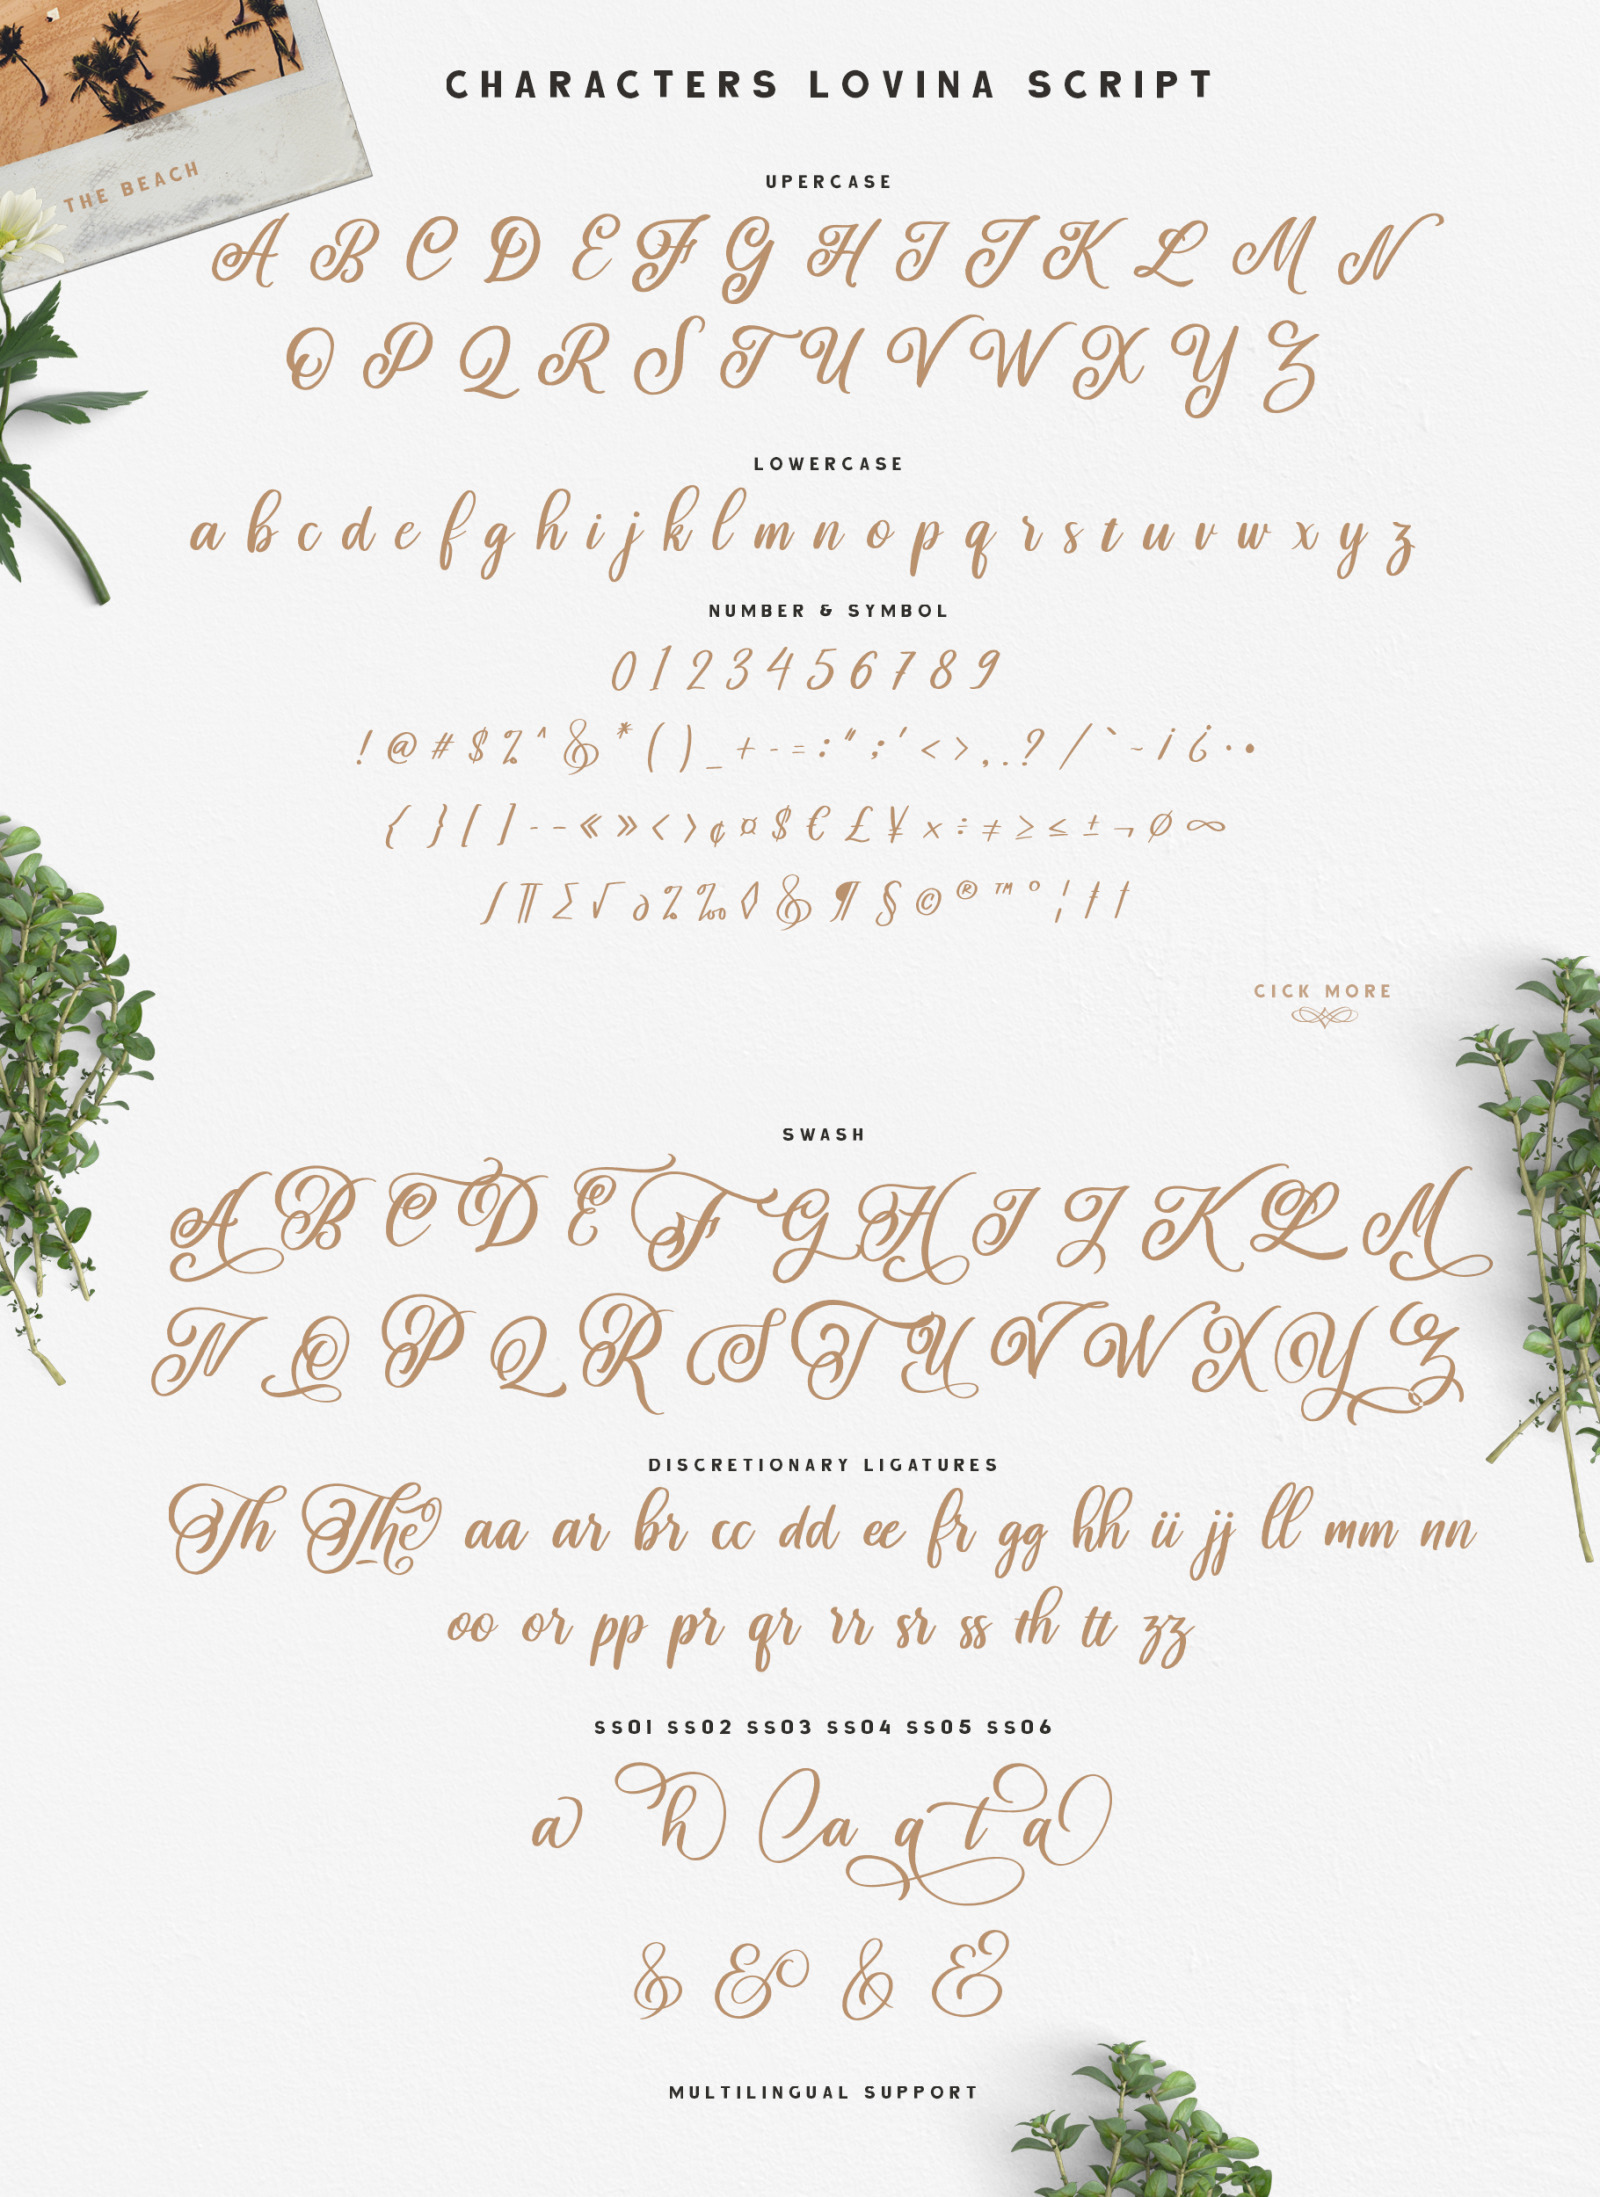 CHARACTERS LOVINA SCRIPT
THE BEACH
UPERCASE
A B C D E F G H I J K L M N
O P Q R S T U V W X Y Z
LOWERCASE
a b c d e f g h i j k l m n o p q r s t u v w x y z
NUMBER & SYMBOL
0 1 2 3 4 5 6 7 8 9
! @ # $ % ^ & * ( ) _ + - = : " ; ' < > , . ? / ` ~ ¡ ¿ · •
{ } [ ] - – « » ‹ › ¢ ¤ $ € £ ¥ × ÷ ≠ ≥ ≤ ± ¬ Ø ∞
∫ ∏ ∑ √ ∂ % ‰ ◊ & ¶ § © ® ™ ° ¦ † †
CICK MORE
SWASH
A B C D E F G H I J K L M
N O P Q R S T U V W X Y Z
DISCRETIONARY LIGATURES
Th The aa ar br cc dd ee fr gg hh ii jj ll mm nn
oo or pp pr qr rr sr ss th tt zz
SS01 SS02 SS03 SS04 SS05 SS06
a h a q t a
& & & &
MULTILINGUAL SUPPORT